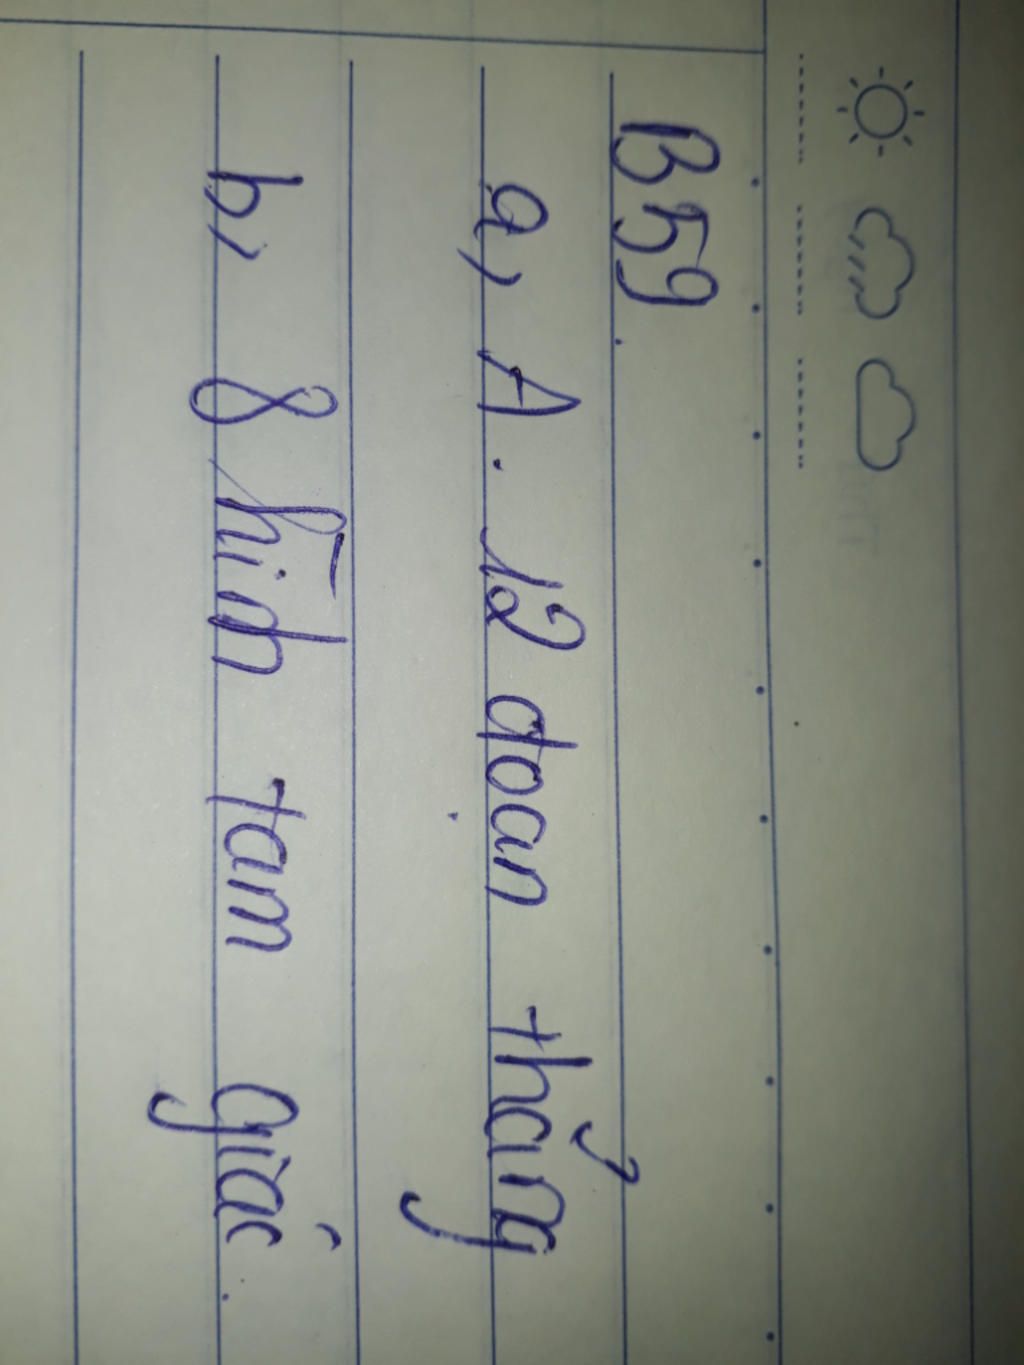 B59.
a, A. 12 đoan thẳng
b, 8 hình tam giác.